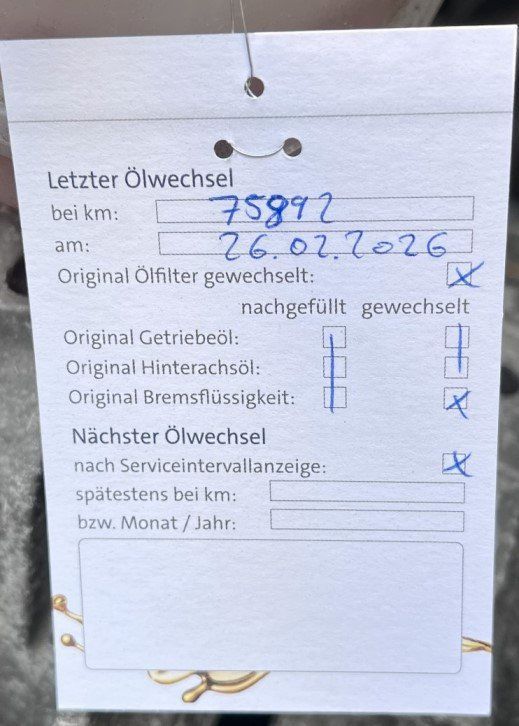 Letzter Ölwechsel
bei km: 75892
am: 26.02.2026
Original Ölfilter gewechselt: X
nachgefüllt gewechselt
Original Getriebeöl:
Original Hinterachsöl:
Original Bremsflüssigkeit: X
Nächster Ölwechsel
nach Serviceintervallanzeige: X
spätestens bei km:
bzw. Monat / Jahr: